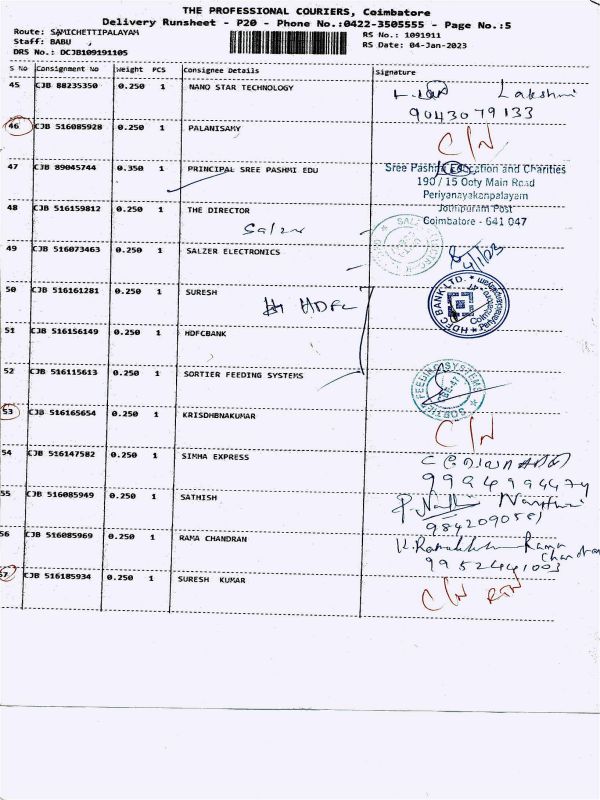 THE PROFESSIONAL COURIERS, Coimbatore
Delivery Runsheet - P20 - Phone No.:0422-3505555 - Page No.:5
Route: SAMICHETTIPALAYAM
RS No.: 1091911
Staff: BABU
RS Date: 04-Jan-2023
DRS No.: DCJB109191105
S No Consignment No Weight PCS Consignee Details Signature
45 CJB 88235350 0.250 1 NANO STAR TECHNOLOGY Lakshmi
9043079133
46 CJB 516085928 0.250 1 PALANISAMY C/N
47 CJB 89045744 0.350 1 PRINCIPAL SREE PASHMI EDU Sree Pashmi Education and Charities
190 / 15 Ooty Main Road
Periyanayakanpalayam
Jothipuram Post
Coimbatore - 641 047
48 CJB 516159812 0.250 1 THE DIRECTOR
Salzer
49 CJB 516073463 0.250 1 SALZER ELECTRONICS 4/1/23
50 CJB 516161281 0.250 1 SURESH
HDFC
HDFC BANK LTD. Coimbatore
51 CJB 516156149 0.250 1 HDFCBANK
52 CJB 516115613 0.250 1 SORTIER FEEDING SYSTEMS SORTIER FEEDING SYSTEMS
53 CJB 516165654 0.250 1 KRISDHBNAKUMAR C/N
54 CJB 516147582 0.250 1 SIMHA EXPRESS
9994994474
55 CJB 516085949 0.250 1 SATHISH
56 CJB 516085969 0.250 1 RAMA CHANDRAN Rama
Chandran
9952441003
57 CJB 516185934 0.250 1 SURESH KUMAR C/N RTN